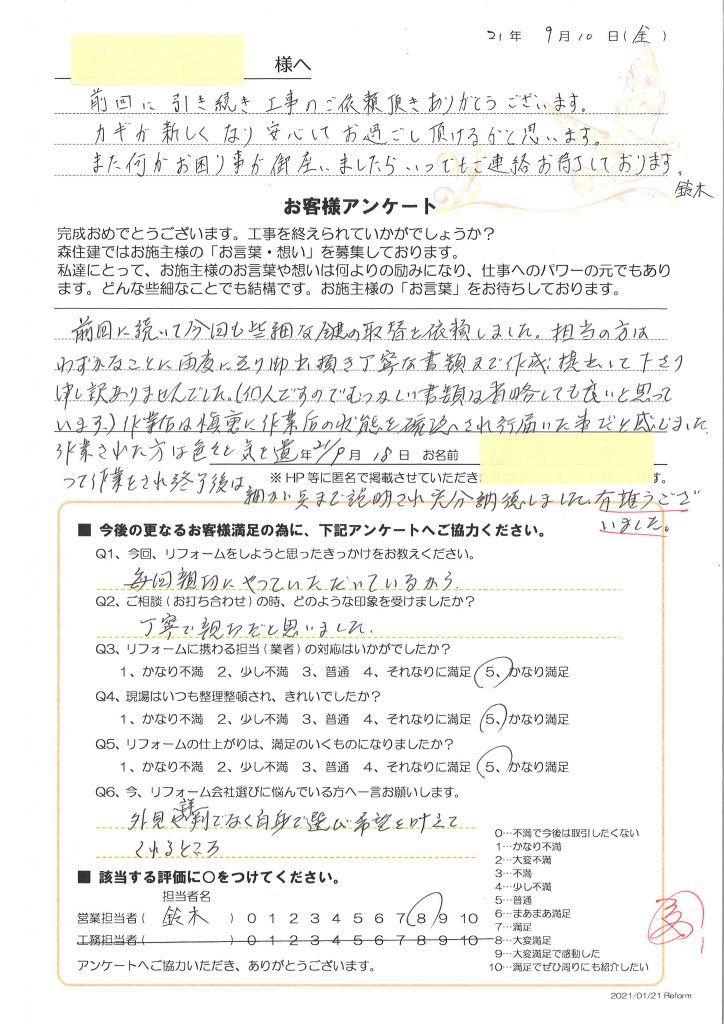 21年 9月10日(金)
様へ
前回に引き続き工事のご依頼頂きありがとうございます。
カギが新しくなり安心してお過ごし頂けるかと思います。
また何かお困り事が御座いましたらいつでもご連絡お待ちしております。
鈴木
お客様アンケート
完成おめでとうございます。工事を終えられていかがでしょうか?
森住建ではお施主様の「お言葉・想い」を募集しております。
私達にとって、お施主様のお言葉や想いは何よりの励みになり、仕事へのパワーの元でもあり
ます。どんな些細なことでも結構です。お施主様の「お言葉」をお待ちしております。
前回に続いて今回も些細な鍵の取替を依頼しました。担当の方は
わずかなことに両度に亘り御出頂き丁寧な書類まで作成、提出して下さり
申し訳ありませんでした。(個人ですのでむつかしい書類は省略しても良いと思って
います。)作業后は慎重に作業后の状態を確認され行届いた事だと感じました
作業された方は色々と気を遣
21年9月18日 お名前
って作業をされ終了後は
※HP等に匿名で掲載させていただき
細かい点まで説明され充分納得しました。有難うござ
いました。
■ 今後の更なるお客様満足の為に、下記アンケートへご協力ください。
Q1、今回、リフォームをしようと思ったきっかけをお教えください。
毎回親切にやっていただいているから
Q2、ご相談(お打ち合わせ)の時、どのような印象を受けましたか?
丁寧で親切だと思いました.
Q3、リフォームに携わる担当(業者)の対応はいかがでしたか?
1、かなり不満 2、少し不満 3、普通 4、それなりに満足 5、かなり満足
Q4、現場はいつも整理整頓され、きれいでしたか?
1、かなり不満 2、少し不満 3、普通 4、それなりに満足 5、かなり満足
Q5、リフォームの仕上がりは、満足のいくものになりましたか?
1、かなり不満 2、少し不満 3、普通 4、それなりに満足 5、かなり満足
Q6、今、リフォーム会社選びに悩んでいる方へ一言お願いします。
外見や評判でなく自身で選び希望を叶えて
くれるところ
0…不満で今後は取引したくない
1…かなり不満
2…大変不満
3…不満
4…少し不満
5…普通
6…まあまあ満足
7…満足
8…大変満足
9…大変満足で感動した
10…満足でぜひ周りにも紹介したい
■ 該当する評価に○をつけてください。
担当者名
営業担当者( 鈴木 ) 0 1 2 3 4 5 6 7 8 9 10
工務担当者( ) 0 1 2 3 4 5 6 7 8 9 10
アンケートへご協力いただき、ありがとうございます。
2021/01/21 Reform